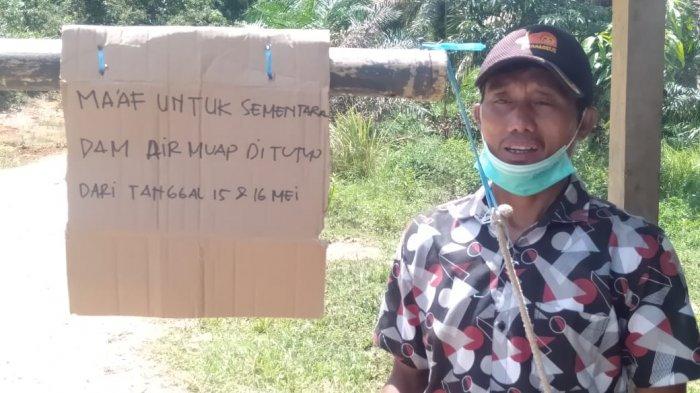 MA'AF UNTUK SEMENTARA
DAM AIR MUAP DITUTUP
DARI TANGGAL 15 & 16 MEI